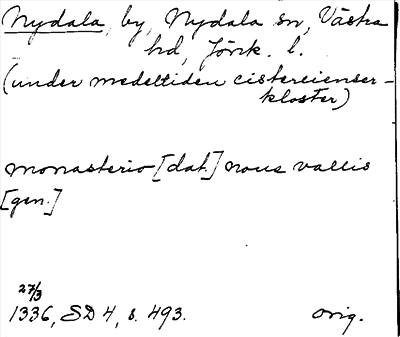 Nydala, by, Nydala sn, Västra
hd, Jönk. l.
(under medeltiden cistercienser-
kloster)
monasterio [dat.] noue vallis
[gen.]
27/3
1336, SD 4, s. 493. orig.